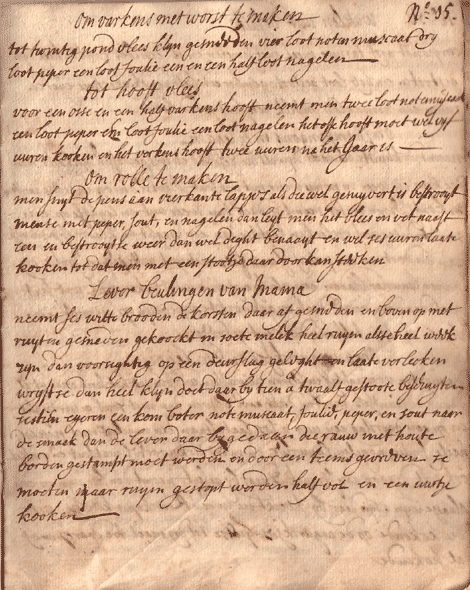 om varkens met worst te maken
N:o 95.
tot twintig pond vlees klijn gesneden vier loot noten muscaat dry
loot peper een loot foulie en een half loot nagelen
tot hooft vlees
voor een osse en een half varkens hooft neemt men twee loot noten muscaat
een loot peper een loot foulie een loot nagelen het osse hooft moet wel vijf
uuren kooken en het verkens hooft twee uuren na het gaar is
om rolle te maken
men snijt de pens aan vierkante lappen als die wel gesuyvert is bestrooyt
mense met peper, sout, en nagelen dan leyt men het vlees en vet naast
een en bestrooyt se weer dan wel deght benaayt en wel ses uuren laate
kooken tot dat men met een strootje daar door kan steken
Lever beulingen van Mama
neemt ses witte brooden de korsten daar af gesneden en boven op met
ruyten gesneden gekoockt in soete melk heel ruym als se heel week
zijn dan voorsightig op een deurslag geleght en laate verleken
wrijft se dan heel klyn doet daar by tien à twaalf gestoote beschuyten
sestien eyeren een kom boter note muscaat, foulie, peper, en sout naar
de smaak dan de lever daar by gedaan die rauw met houte
borden gestampt moet werden en door een teems gevreven se
moeten maar ruym gestopt worden half vol en een uurtje
kooken